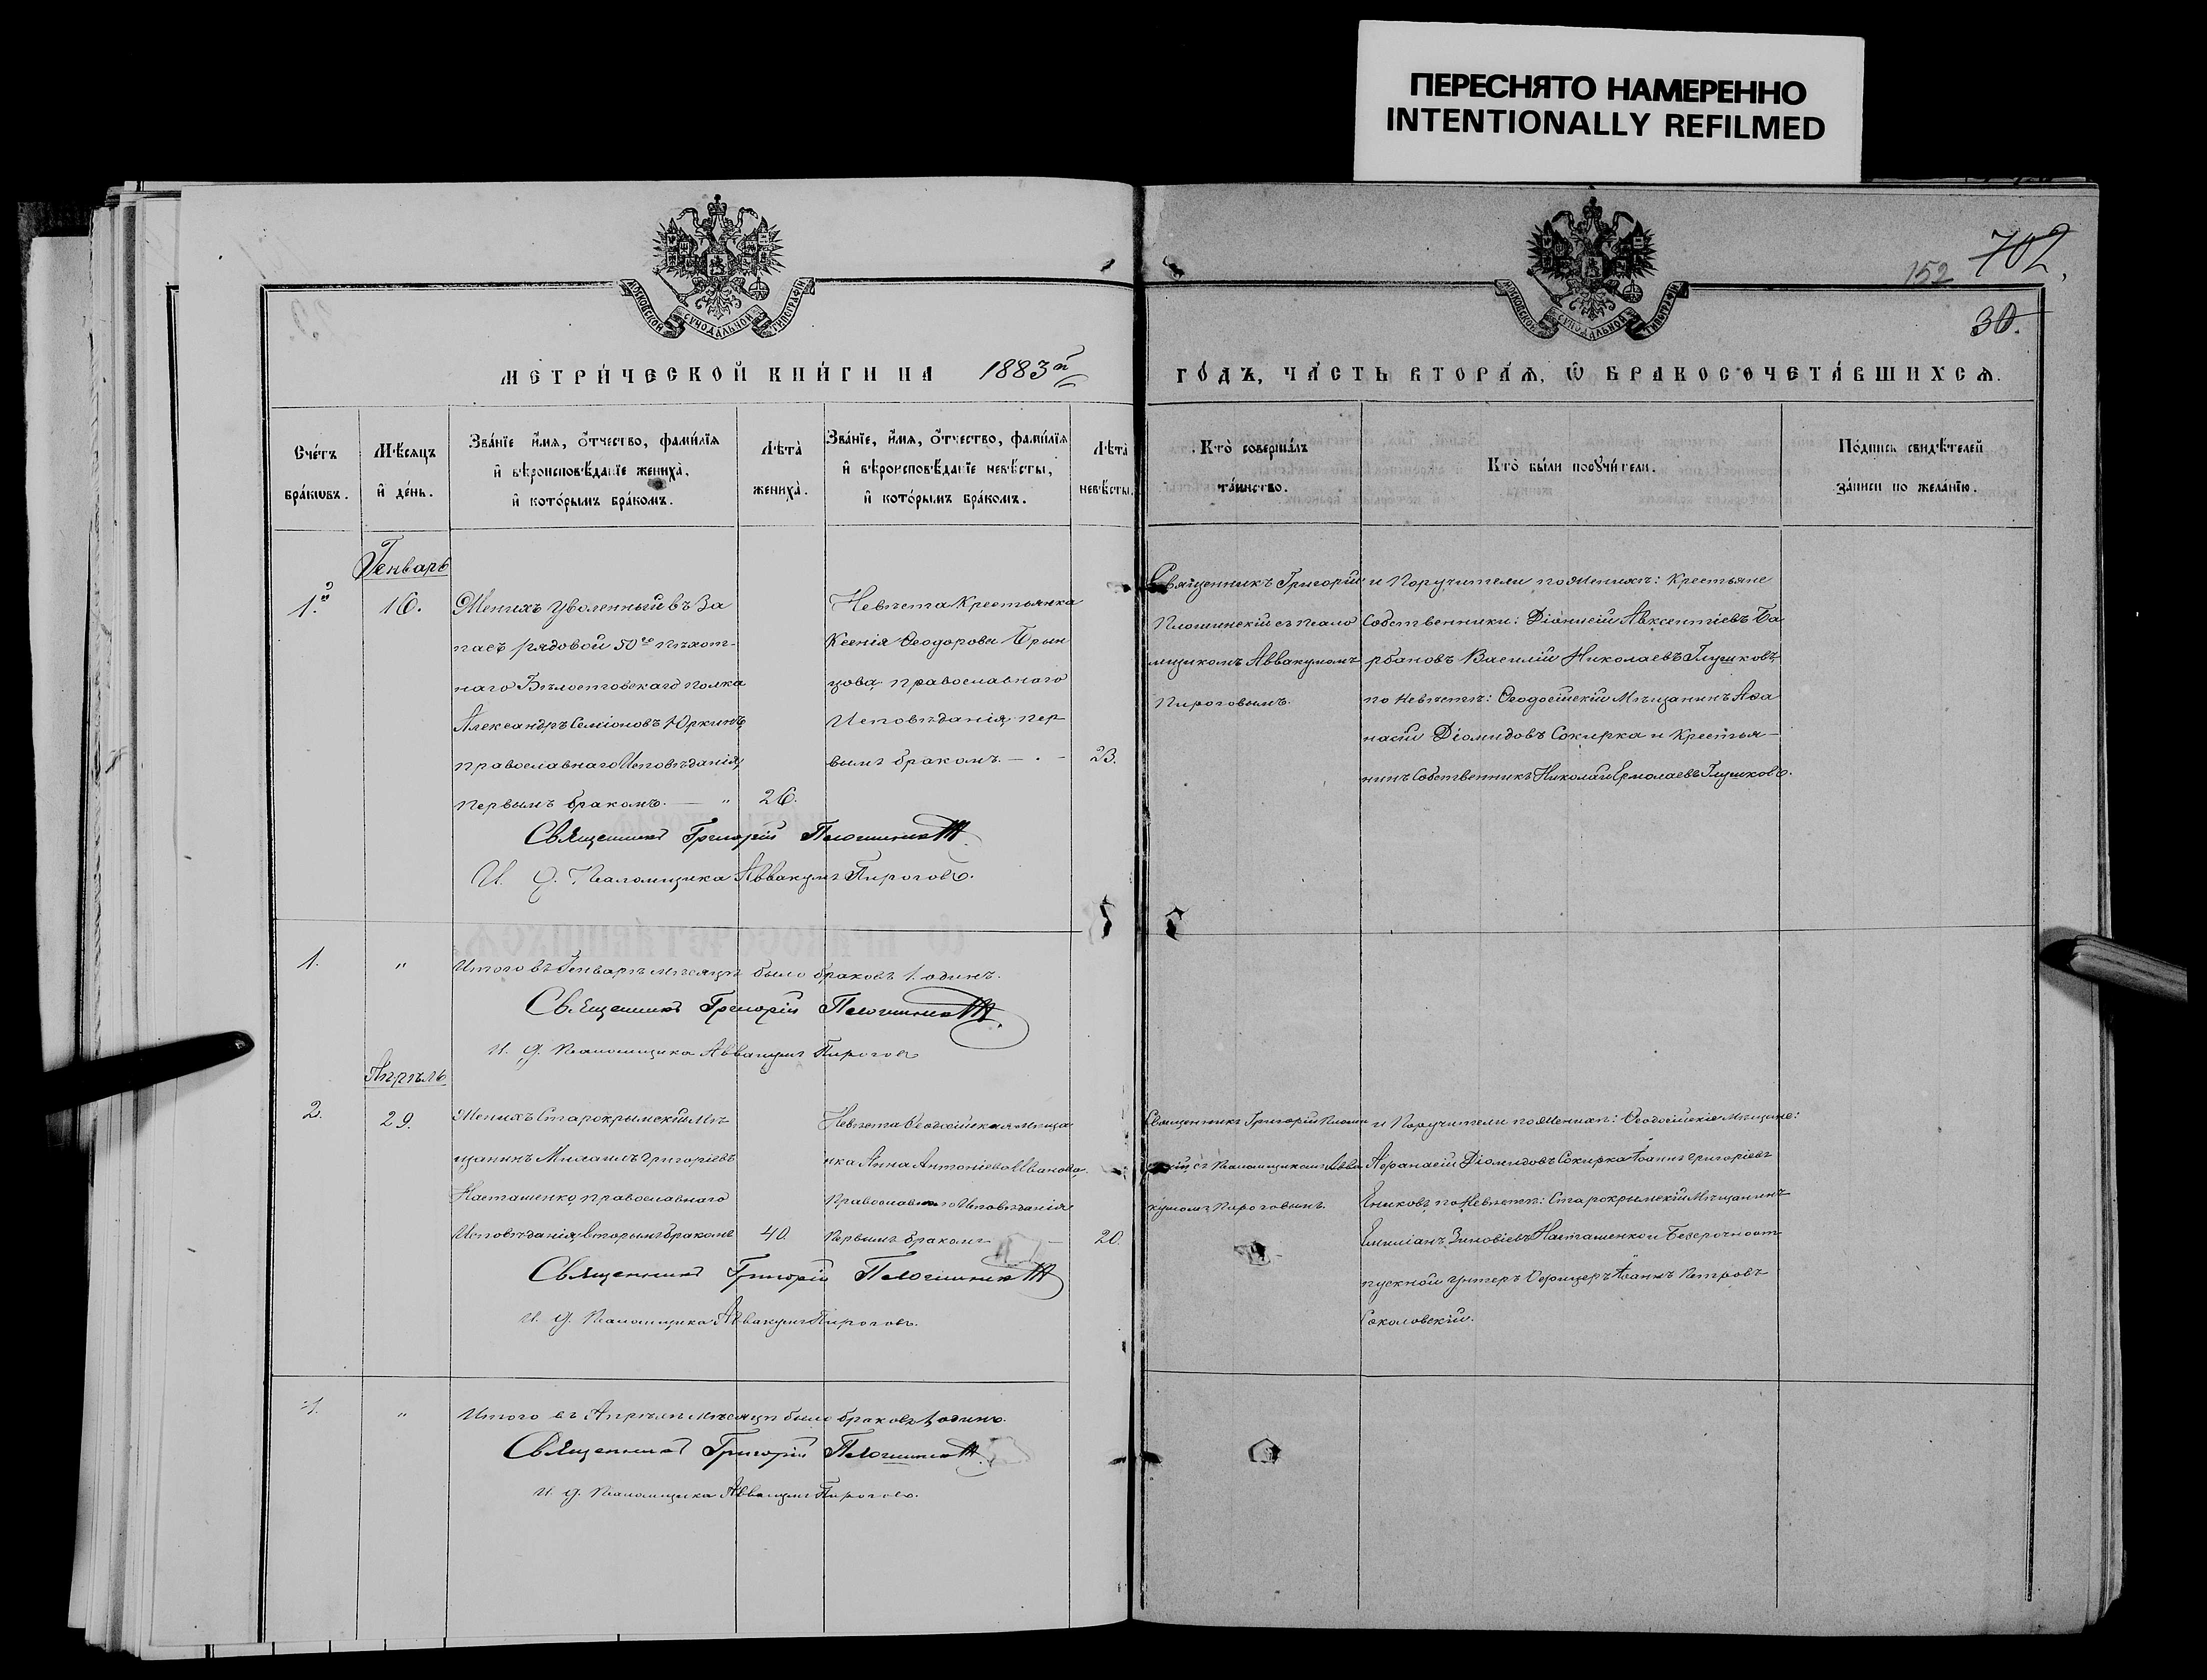 ПЕРЕСНЯТО НАМЕРЕННО
INTENTIONALLY REFILMED
МОСКОВСКОЙ СУНОДАЛЬНОЙ ТИПОГРАФІИ
МОСКОВСКОЙ СУНОДАЛЬНОЙ ТИПОГРАФІИ
152 702.
30.
МЕТРИ́ЧЕСКОЙ КНИ́ГИ НА 1883й
ГО́ДЪ, ЧА́СТЬ ВТОРА́Ѧ, Ѡ БРАКОСОЧЕТА́ВШИХСѦ.
Сче́тъ
бра́ковъ.
Мѣ́сяцъ
и де́нь.
Зва́нїе и҆́мя, ѻ҆́тчество, фами́лїя
и҆ вѣроисповѣ́данїе жениха̀,
и҆ кото́рымъ бра́комъ.
Лѣ́та̀
жениха̀.
Зва́нїе, и҆́мя, ѻ҆́тчество, фами́лїя
и҆ вѣроисповѣ́данїе невѣ́сты,
и҆ кото́рымъ бра́комъ.
Лѣ́та̀
невѣ́сты.
Кто̀ соверша́лъ
та́инство.
Кто̀ бы́ли порꙋчи́тели.
По́дпись свидѣ́телей
за́писи по жела́нїю.
Генварь
1.
16.
Женихъ уволенный въ За
пасъ рядовой 50го пѣхот-
наго Бѣлостокскаго полка
Александръ Семіоновъ Юркинъ,
православнаго Исповѣданія,
первымъ бракомъ. — "
26.
Невѣста Крестьянка
Ксенія Ѳеодорова Брын
цова, православнаго
Исповѣданія, пер
вымъ бракомъ. — . —
23.
Священникъ Григорій
Плошинскій съ псало
мщикомъ Аввакумомъ
Пироговымъ.
и Поручители по Женихѣ: Крестьяне
Собственники: Діонисій Авксентіевъ Ба
рбановъ Василій Николаевъ Глушковъ,
по Невѣстѣ: Ѳеодосійскій Мѣщанинъ Аѳа
насій Діомидовъ Сокирка и Крестья-
нинъ Собственникъ Николай Ермолаевъ Глушковъ.
Священникъ Григорій Плошинскій
И. д. Псаломщика Аввакумъ Пироговъ.
1.
"
Итого въ Генварѣ мѣсяцѣ было браковъ 1. одинъ.
Священникъ Григорій Плошинскій
И. д. Псаломщика Аввакумъ Пироговъ
Апрѣль
2.
29.
Женихъ Старокрымскій Мѣ
щанинъ Михаилъ Григоріевъ
Насташенко, православнаго
Исповѣданія, вторымъ бракомъ
40.
Невѣста Ѳеодосійская мѣща
нка Анна Антоніева Иванова,
Православнаго Исповѣданія
Первымъ бракомъ —
20.
Священникъ Григорій Плоши
нскій съ Псаломщикомъ Авва
кумомъ Пироговымъ.
и Поручители по Женихѣ: Ѳеодосійскіе Мѣщане:
Аѳанасій Діомидовъ Сокирка Іоаннъ Григоріевъ
Ениковъ, по Невѣстѣ: Старокрымскій Мѣщанинъ
Емиліанъ Зиновіевъ Насташенко и Безсрочноот
пускной Унтеръ Офицеръ Іоаннъ Петровъ
Соколовскій.
Священникъ Григорій Плошинскій
И. д. Псаломщика Аввакумъ Пироговъ.
1.
"
Итого въ Апрѣлѣ мѣсяцѣ было браковъ 1 одинъ.
Священникъ Григорій Плошинскій
И. д. Псаломщика Аввакумъ Пироговъ.